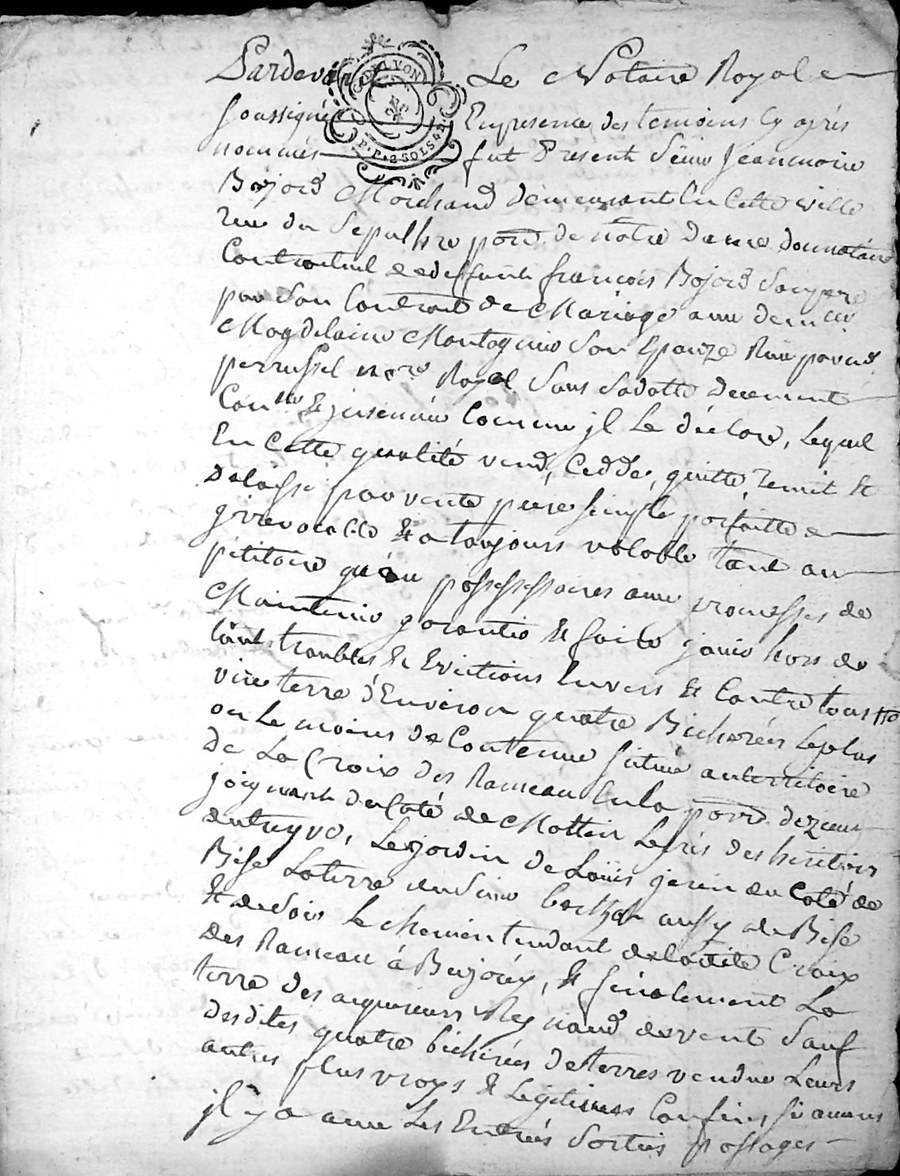 Pardevan Le Notaire Royal
soussigné En presence des temoins Cy après
nommés fut Present Sieur Jean
GEN. LYON
P.P. 2 SOLS 4 D
Bojord Marchand demeurant En Cette ville
rue du Sepulkre de notre dame donnataire
Contractuel de deffunt francois Bojord Son pere
par Son Contract de Mariage avec
Magdelaine Son Epouze Reçu
perrussel Royal Sans Sadotte
Comme jl Le déclare, Lequel
En Cette qualité vend, Cedde, quitte remit Et
delaisse par vente pure simple parfaitte
jrrevocable Et a toujours valable tant au
petitoire qu'au possessoires avec promesses de
Maintenir garantir Et faire jouir hors de
tous troubles Et Evictions Envers Et Contre tous
terre d'Environ quatre Bicherées Le plus
ou Le moins de Contenue située au territoire
de La Croix des Rameau En La
joignant du Coté de Mattin Le Prés des heritiers
Le jardin de Loüis du Coté de
Bise La terre du Sieur aussy de Bise
Et de Soir Le Chemin tendant de Laditte Croix
des Rameau à Et finalement La
terre des acquereurs de vent Sauf
desdites quatre bicherées de terres vendue Leurs
autres plus vrays Et Legitimes Confins Si aucuns
jl y a avec Les Entrées Sorties passages